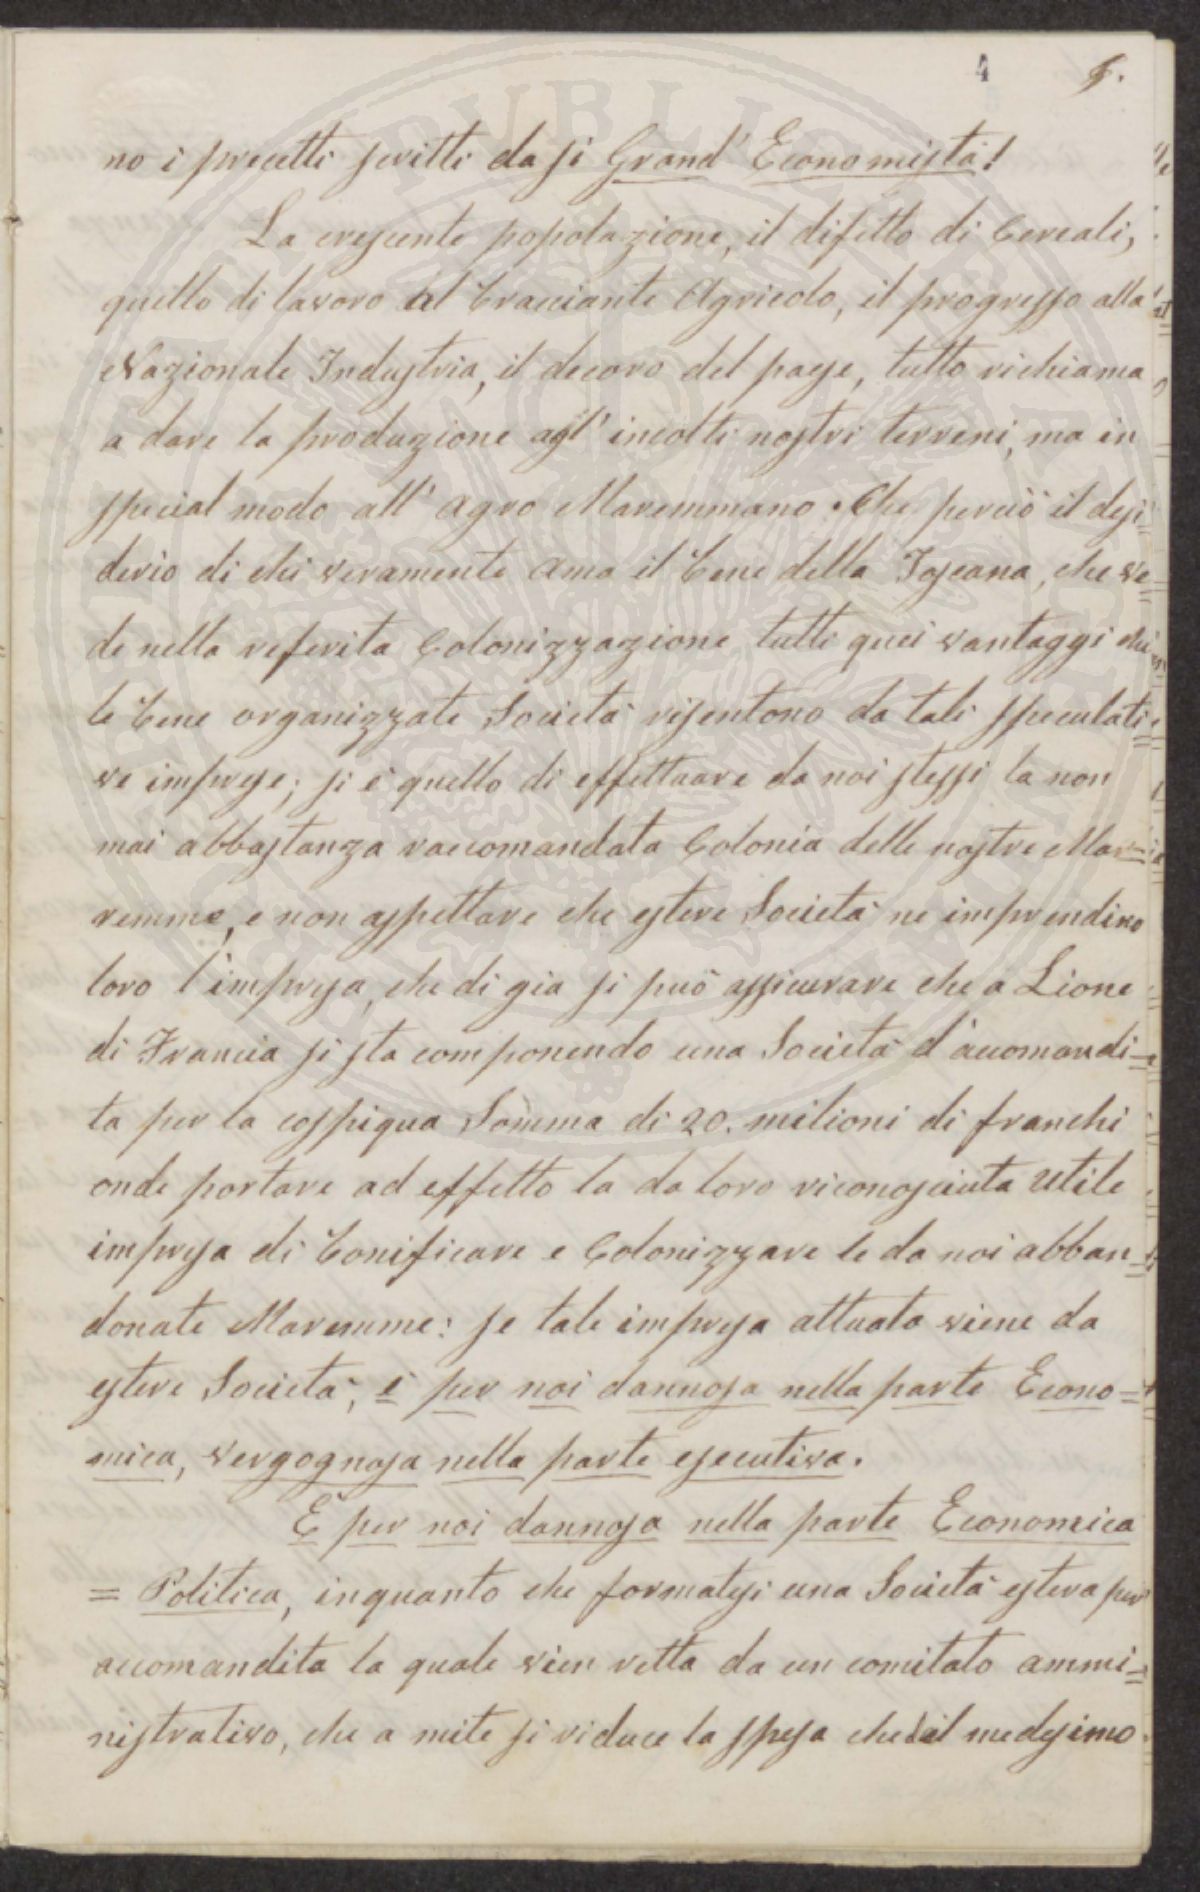 4 5.
no i precetti scritti da sì Grand' Economista!
La crescente popolazione, il difetto di Cereali,
quello di lavoro al bracciante Agricolo, il progresso alla
Nazionale Industria, il decoro del paese, tutto richiama
a dare la produzione agl' incolti nostri terreni, ma in
special modo all' agro Maremmano. Che perciò il desi=
derio di chi veramente ama il bene della Toscana, che ve=
de nella referita Colonizzazione tutti quei vantaggi che
le bene organizzate Società risentono da tali speculati=
ve imprese; si è quello di effettuare da noi stessi la non
mai abbastanza raccomandata Colonia delle nostre Ma=
remme, e non aspettare che estere Società ne imprendino
loro l'impresa, che di gia si può assicurare che a Lione
di Francia si sta componendo una Società d'accomandi=
ta per la cospiqua Somma di 20. milioni di franchi
onde portare ad effetto la da loro riconosciuta utile
impresa di bonificare e Colonizzare le da noi abban=
donate Maremme: se tale impresa attuata viene da
estere Società, è per noi dannosa nella parte Econo=
mica, vergognosa nella parte esecutiva.
È per noi dannosa nella parte Economica
= Politica, inquanto che formatesi una Società estera per
accomandita la quale vien retta da un comitato ammi=
nistrativo, che a mite si riduce la spesa che il medesimo
PUBLIC